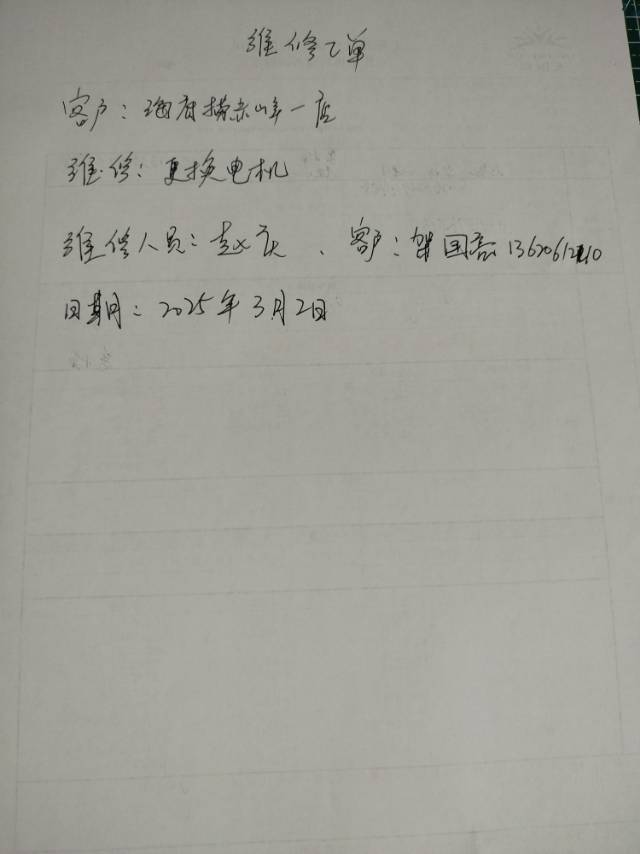 维修工单
客户：海府捞赤峰一店
维修：更换电机
维修人员：赵庆、客户：贺国
日期：2025年3月2日